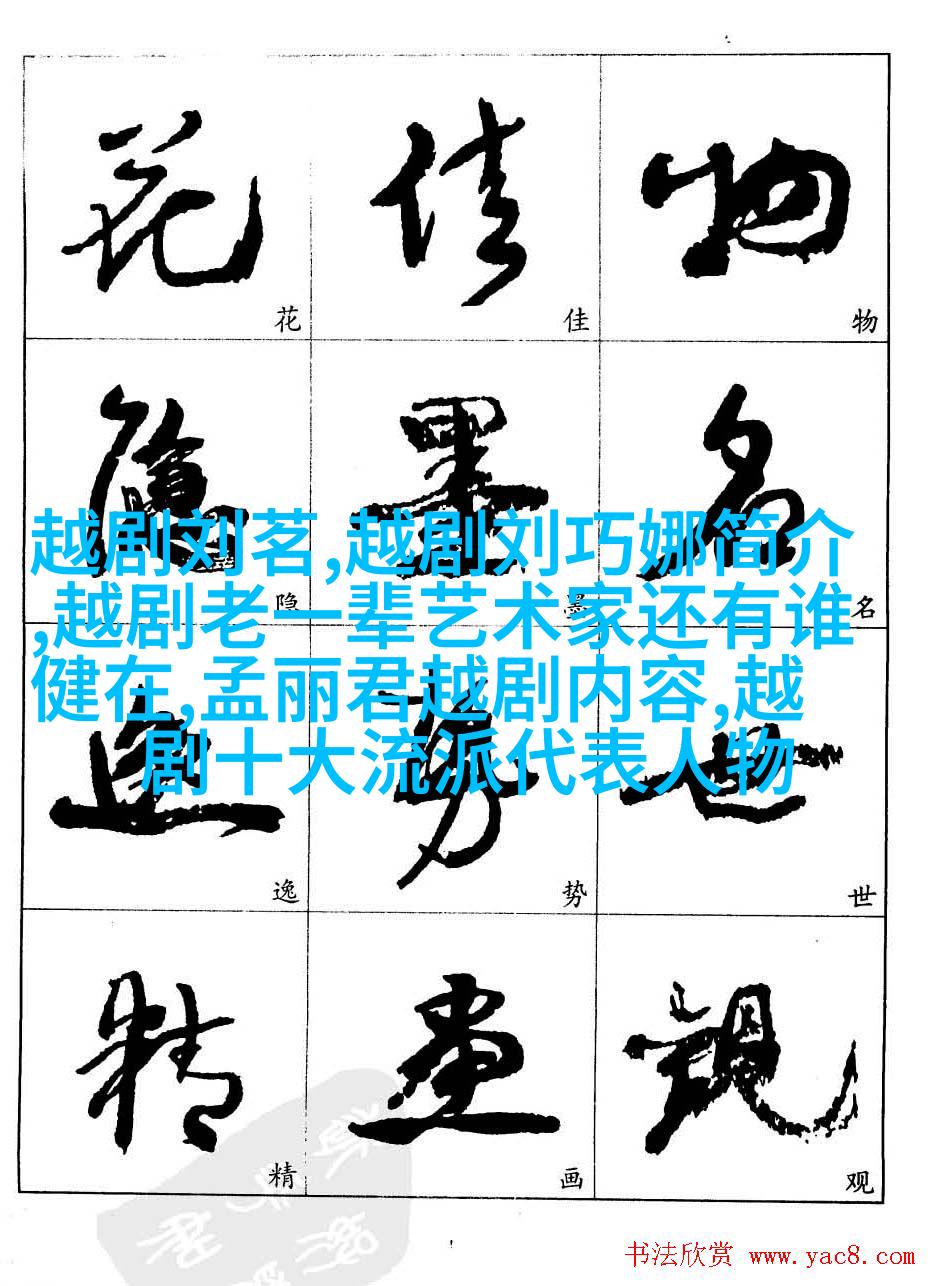 花 佳 物
花 佳 物
隱 墨 名
越剧刘茗,越剧刘巧娜简介
,越剧老一辈艺术家还有谁
健在,孟丽君越剧内容,越
剧十大流派代表人物
隐 墨 名
逸 勢 世
逸 势 世
精 畫 觀
精 画 观
书法欣赏 www.yac8.com